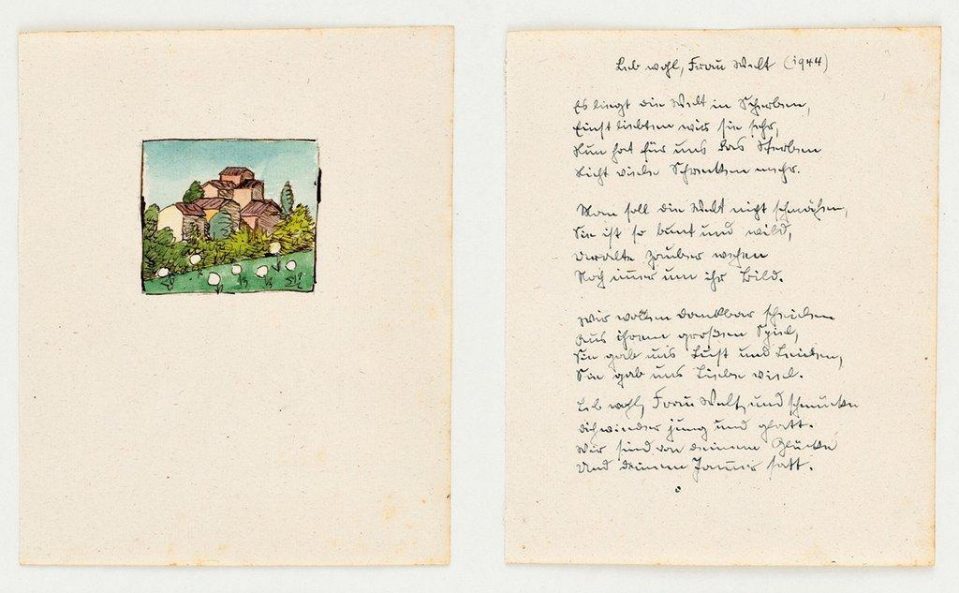 Leb wohl, Frau Welt (1944)
Es liegt die Welt in Scherben,
Einst liebten wir sie sehr,
Nun hat für uns das Sterben
Nicht viele Schrecken mehr.
Man soll die Welt nicht schmähen,
Sie ist so bunt und wild,
Uralte Zauber wehen
Noch immer um ihr Bild.
Wir wollen dankbar scheiden
Aus ihrem großen Spiel,
Sie gab uns Lust und Leiden,
Sie gab uns Liebe viel.
Leb wohl, Frau Welt, und schmücke
Dich wieder jung und glatt.
Wir sind von deinem Glücke
Und deinem Jammer satt.